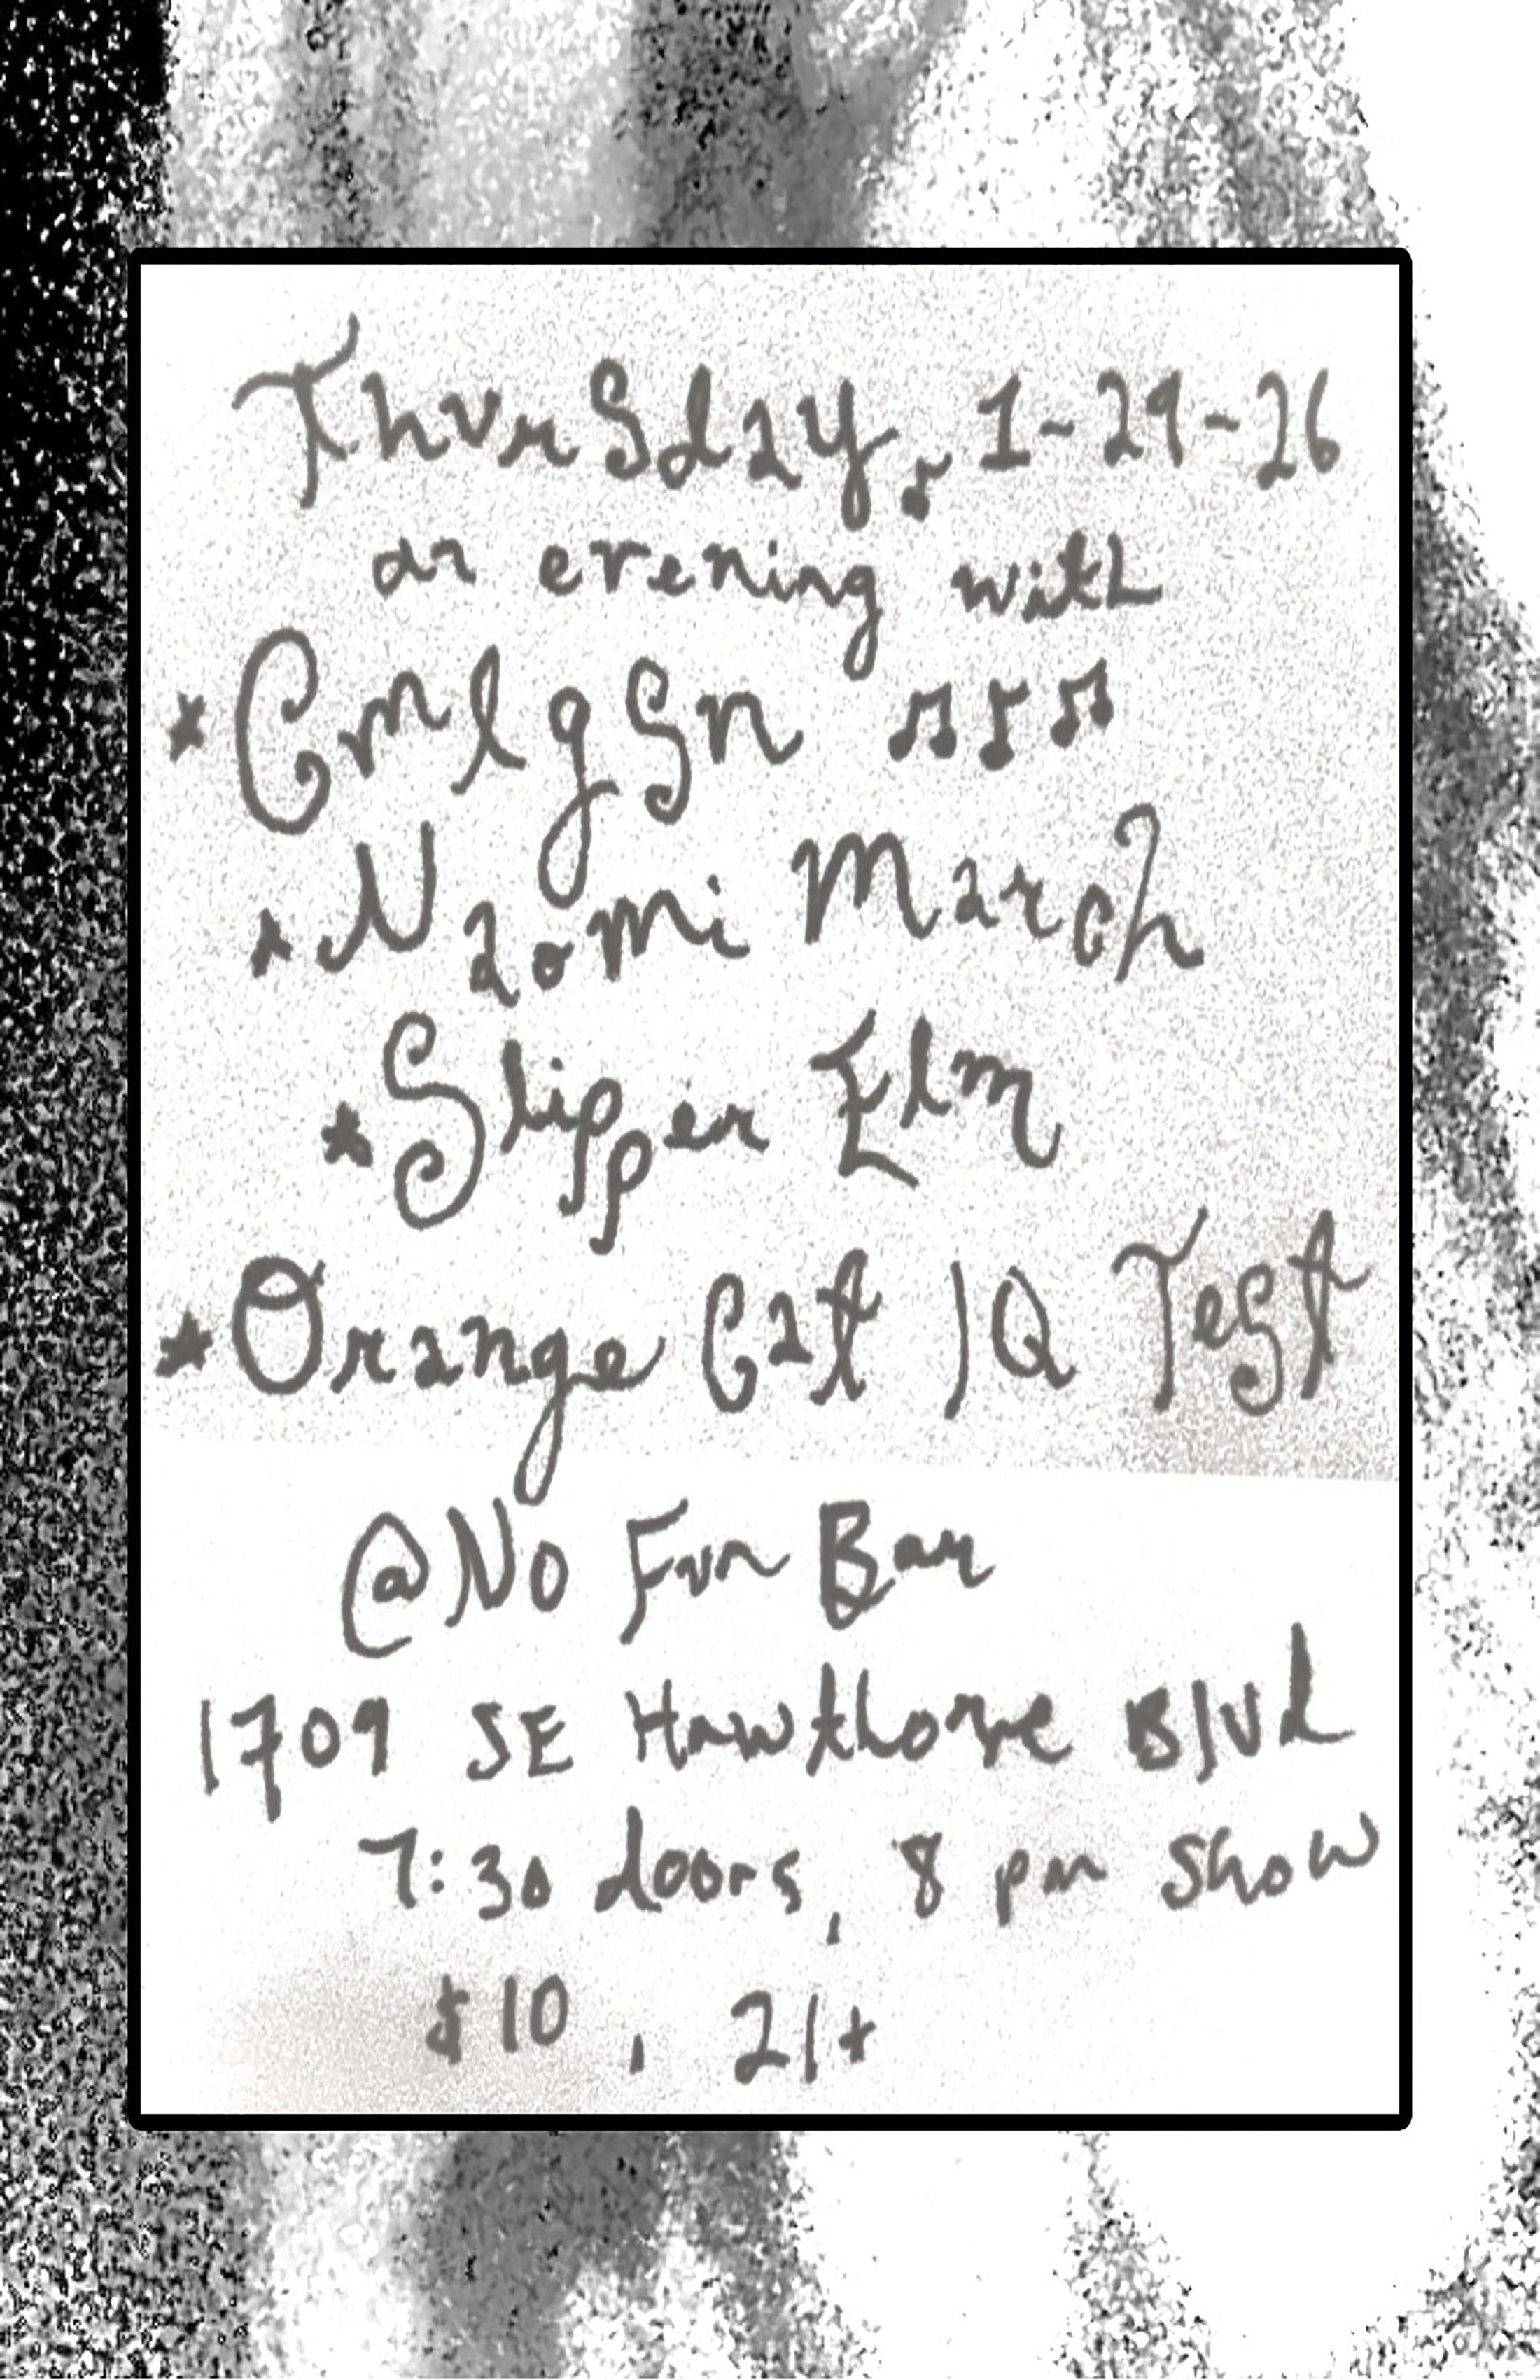 Thursday, 1-29-26
an evening with
* CmlgSn ♫♪♫
* Naomi March
* Slipper Elm
* Orange Cat IQ Test
@No Fun Bar
1709 SE Hawthorne Blvd
7:30 doors, 8 pm Show
$10, 21+